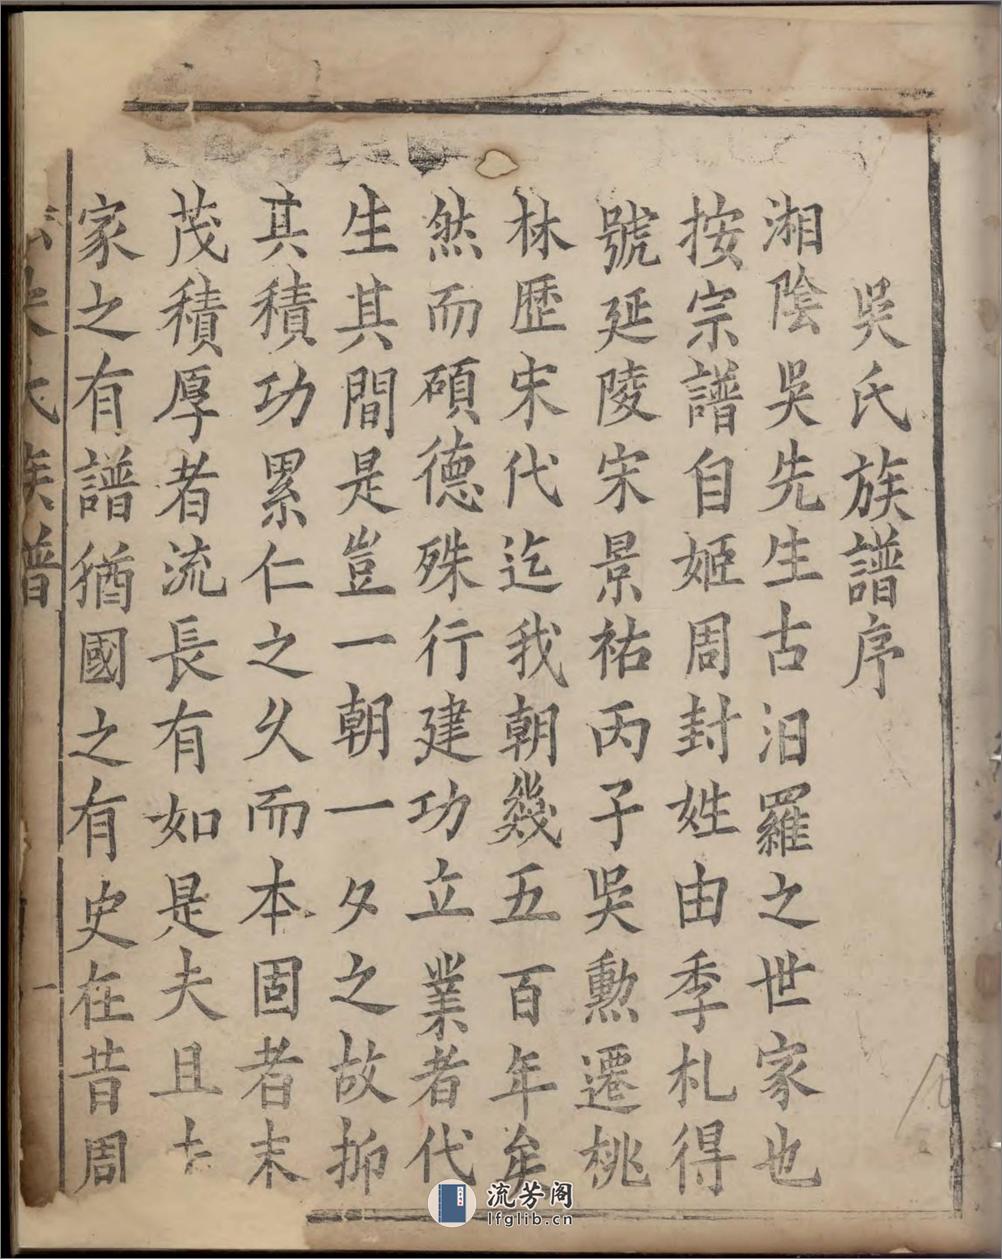 吳氏族譜序
湘陰吳先生古汨羅之世家也
按宗譜自姬周封姓由季札得
號延陵宋景祐丙子吳勲遷桃
林歷宋代迄我朝幾五百年牟
然而碩德殊行建功立業者代
生其間是豈一朝一夕之故抑
其積功累仁之久而本固者末
茂積厚者流長有如是夫且
家之有譜猶國之有史在昔周
族譜
一
流芳阁
lfglib.cn